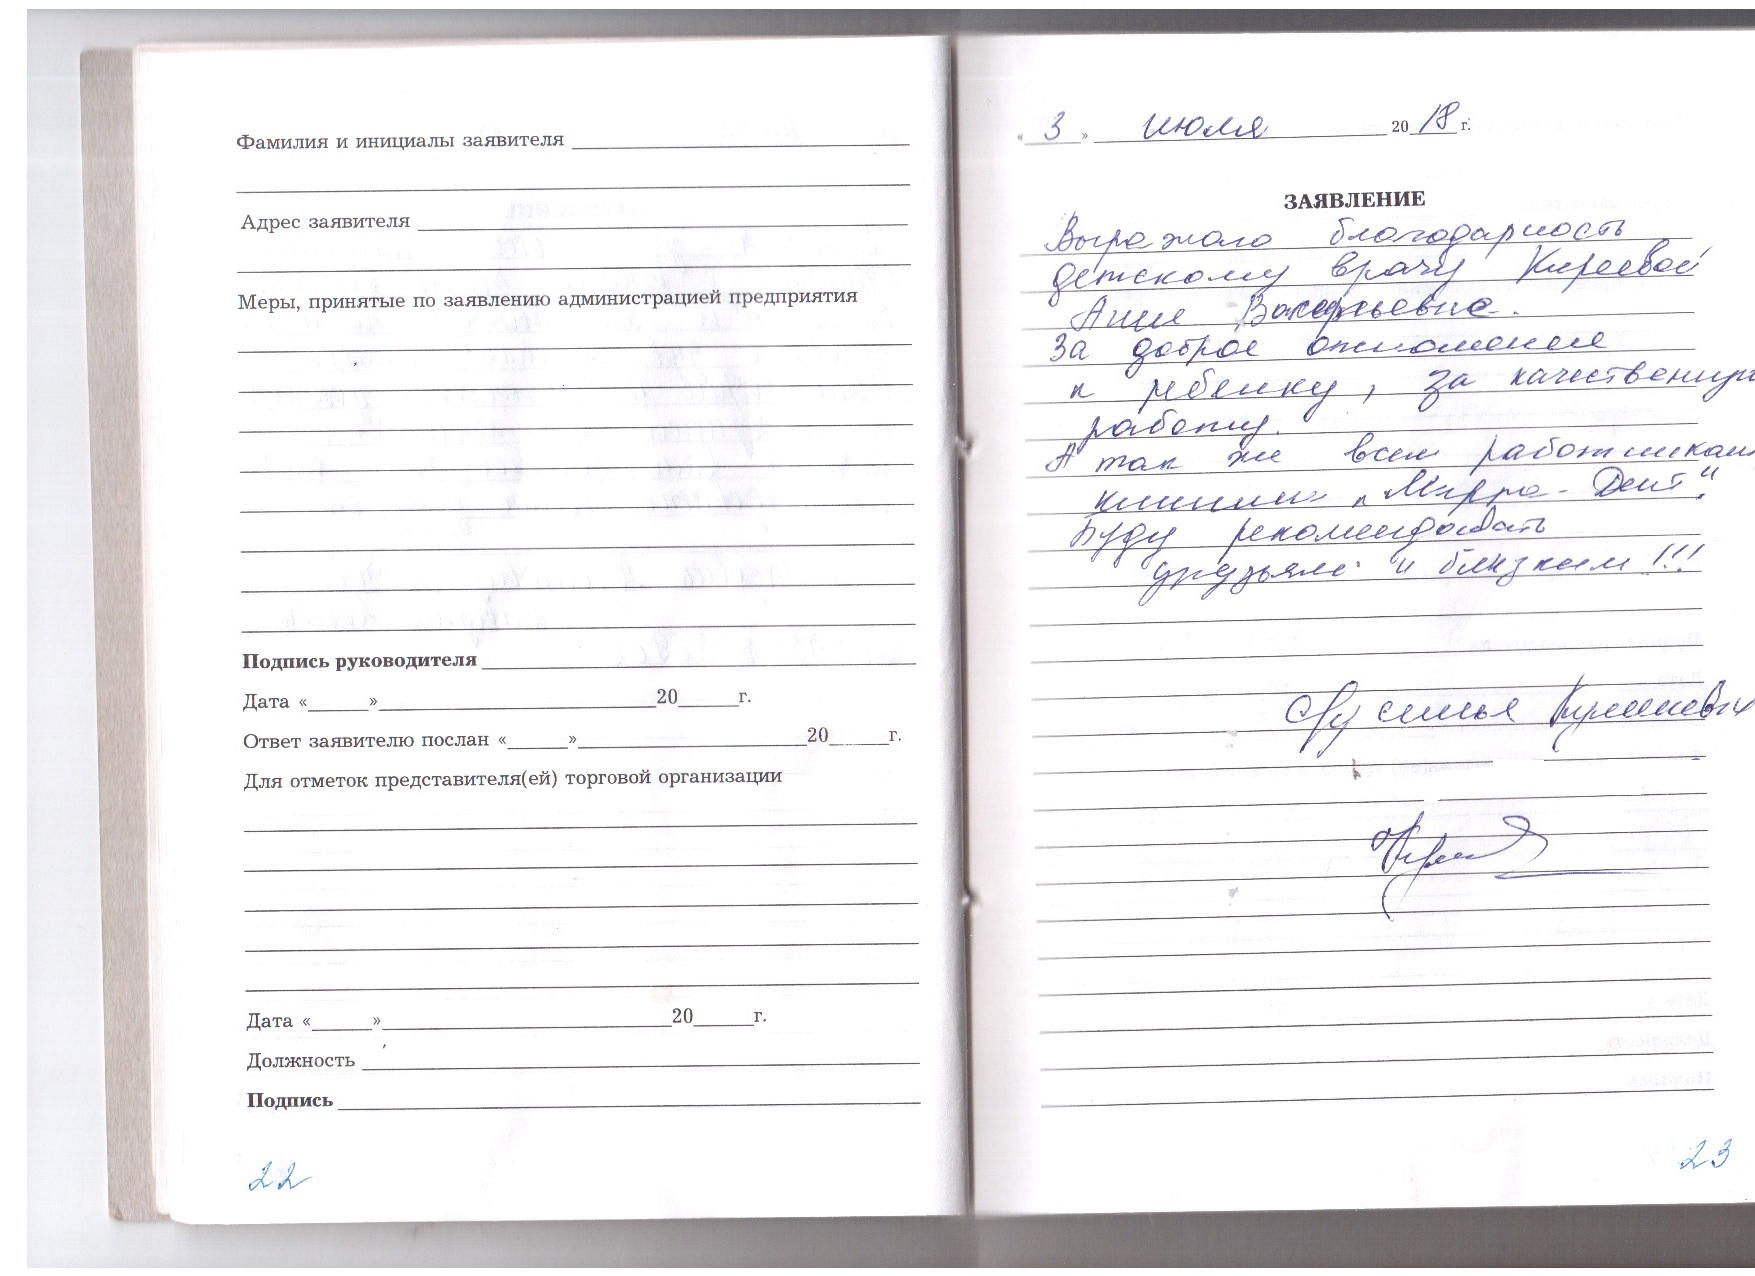 Фамилия и инициалы заявителя
Адрес заявителя
Меры, принятые по заявлению администрацией предприятия
Подпись руководителя
Дата «______»____________20______г.
Ответ заявителю послан «______»____________20______г.
Для отметок представителя(ей) торговой организации
Дата «______»____________20______г.
Должность
Подпись
22
« 3 » июля 2018 г.
ЗАЯВЛЕНИЕ
Выражаю благодарность
детскому врачу Киреевой
Анне
За доброе отношение
к ребенку, за
работу.
А так же всем работникам
клиники „Мирра-Дент".
Буду рекомендовать
друзьям и близким!!!
Семья
23